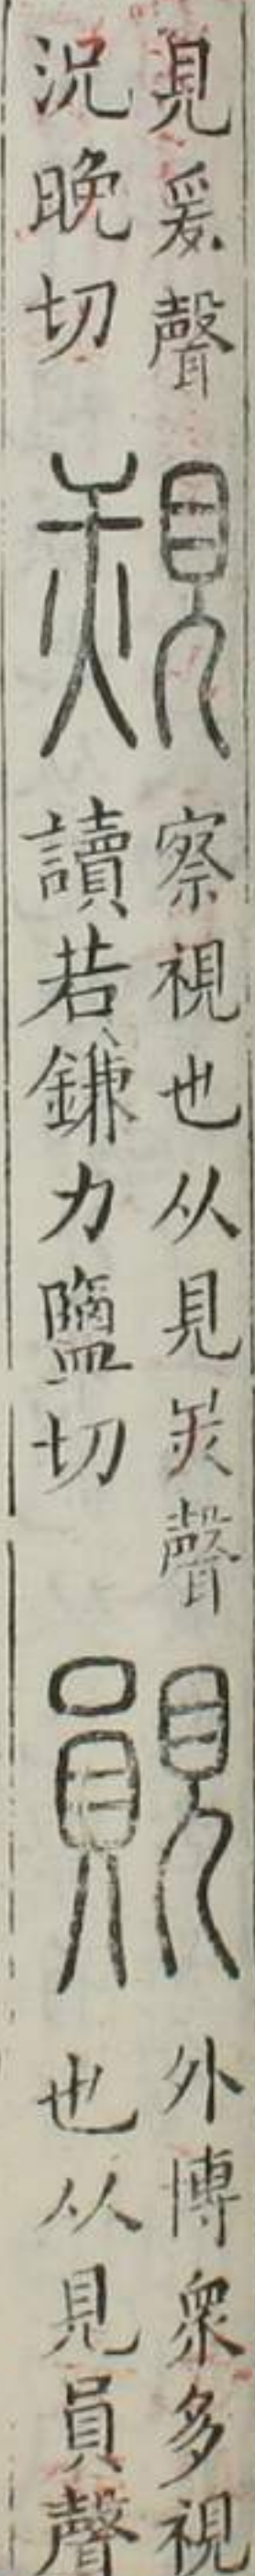 見爰聲
況晚切
覝
察視也从見㶣聲
讀若鎌力鹽切
䚋
外博衆多視
也从見員聲